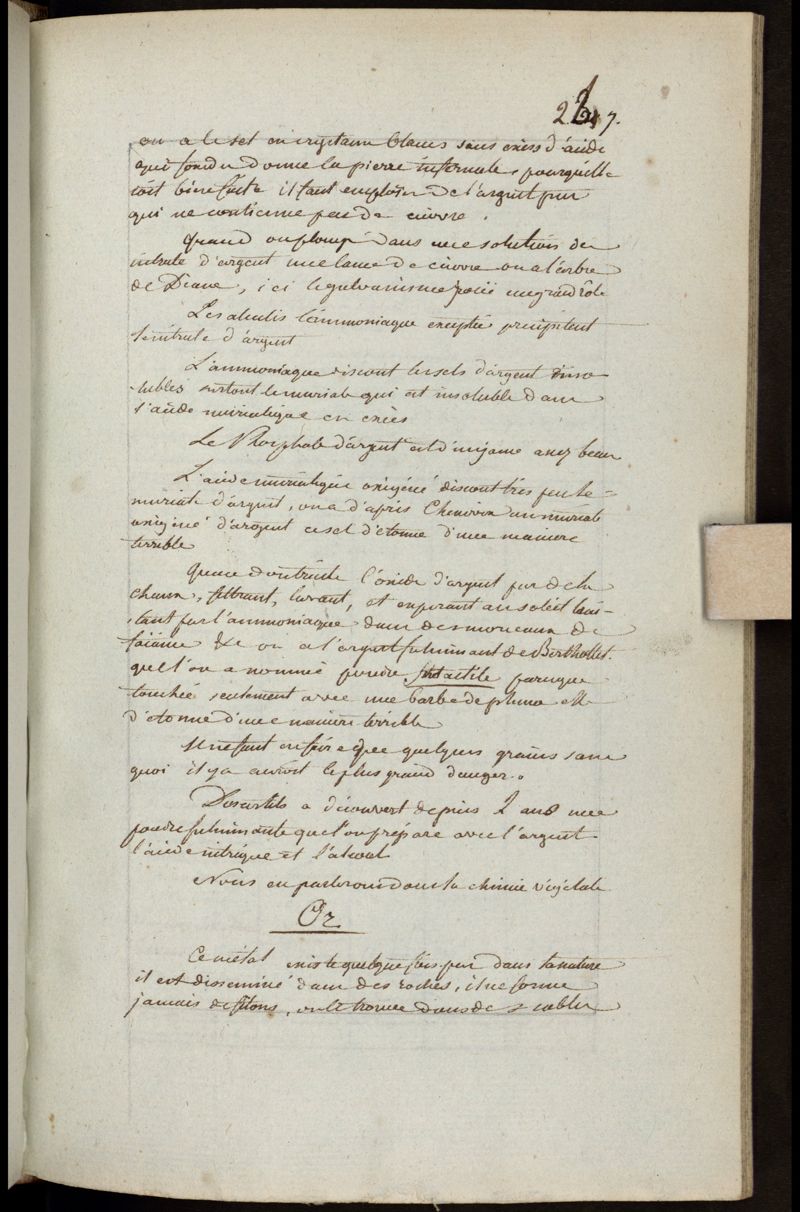 247.
on a le sel en cristaux blancs sans excès d'acide
qui fondu donne la pierre infernale, pourqu'elle
soit bien faite il faut employer de l'argent pur
qui ne contienne pas de cuivre.
Quand on plonge dans une solution de
nitrate d'argent une lame de cuivre on a l'arbre
de Diane, ici le galvanisme joue un grand rôle
Les alcalis l'ammoniaque exceptée précipitent
le nitrate d'argent
L'ammoniaque dissout les sels d'argent inso-
lubles surtout le muriate qui est insoluble dans
l'acide muriatique en excès
Le Phosphate d'argent est d'un jaune assez beau
L'acide muriatique oxigéné dissout très peu le
muriate d'argent, on a d'apris Chenevix un muriate
oxigéné d'argent ce sel détonne d'une maniere
terrible
Quand on traite l'oxide d'argent par de la
chaux, filtrant, lavant, et exposant au soleil trai-
tant par l'ammoniaque dans des morceaux de
faïance &c on a l'argent fulminant de Berthollet.
que l'on a nommé poudre fultactile parceque
touchée seulement avec une barbe de plume elle
détonne d'une maniere terrible
Il ne faut en faire que quelques grains sans
quoi il y a auroit le plus grand danger.
Descostils a découvert depuis 2 ans une
poudre fulminante que l'on prépare avec l'argent
l'acide nitrique et l'alcool
Nous en parlerons dans la chimie végétale
Or
Ce métal existe quelque fois pur dans la nature
il est disseminé dans des roches, il ne forme
jamais de filons, on le trouve dans des sables